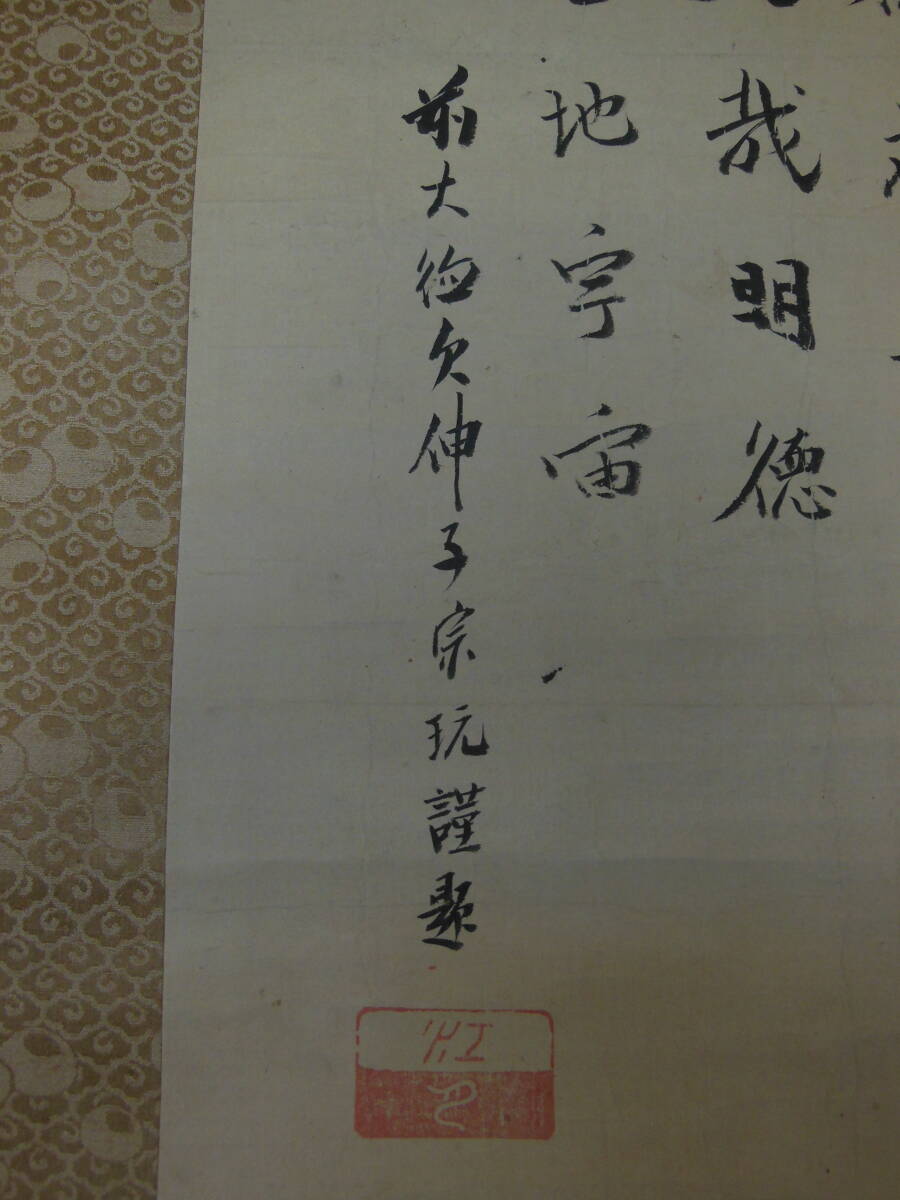 哉明德
地宇宙
前大德欠伸子宗玩謹題